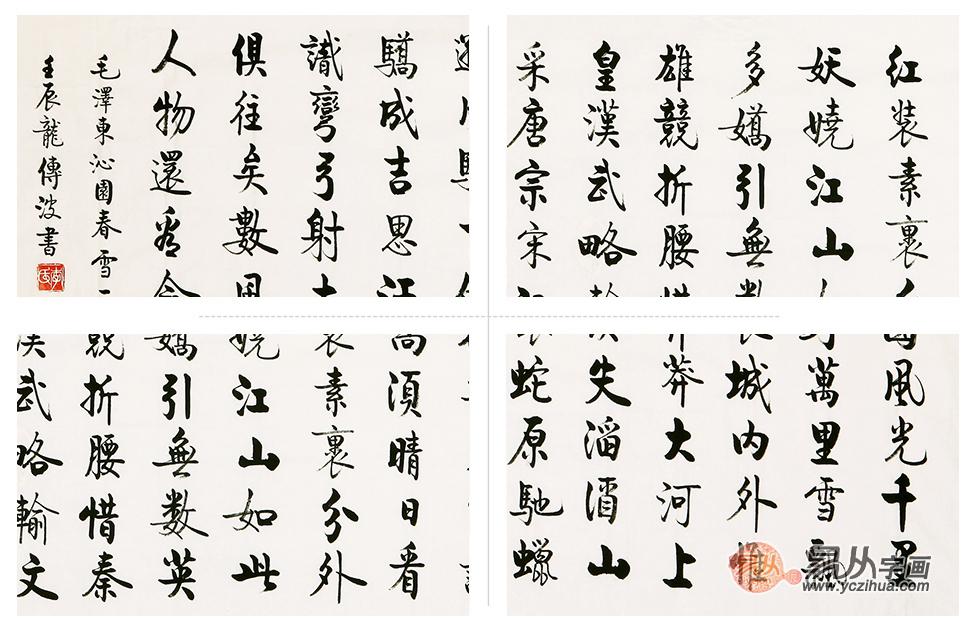 驕成吉思
識彎弓射
俱往矣數
人物還看今
毛澤東沁園春雪
壬辰龍傳波書
紅裝素裹
妖嬈江山
多嬌引無
雄競折腰
皇漢武略
采唐宗宋
須晴日看
素裹分外
嬈江山如此
嬌引無數英
競折腰惜秦
武略輸文
風光千里
萬里雪飄
城內外惟
莽大河上
失滔滔山
蛇原馳蠟
易从字画
www.yczihua.com